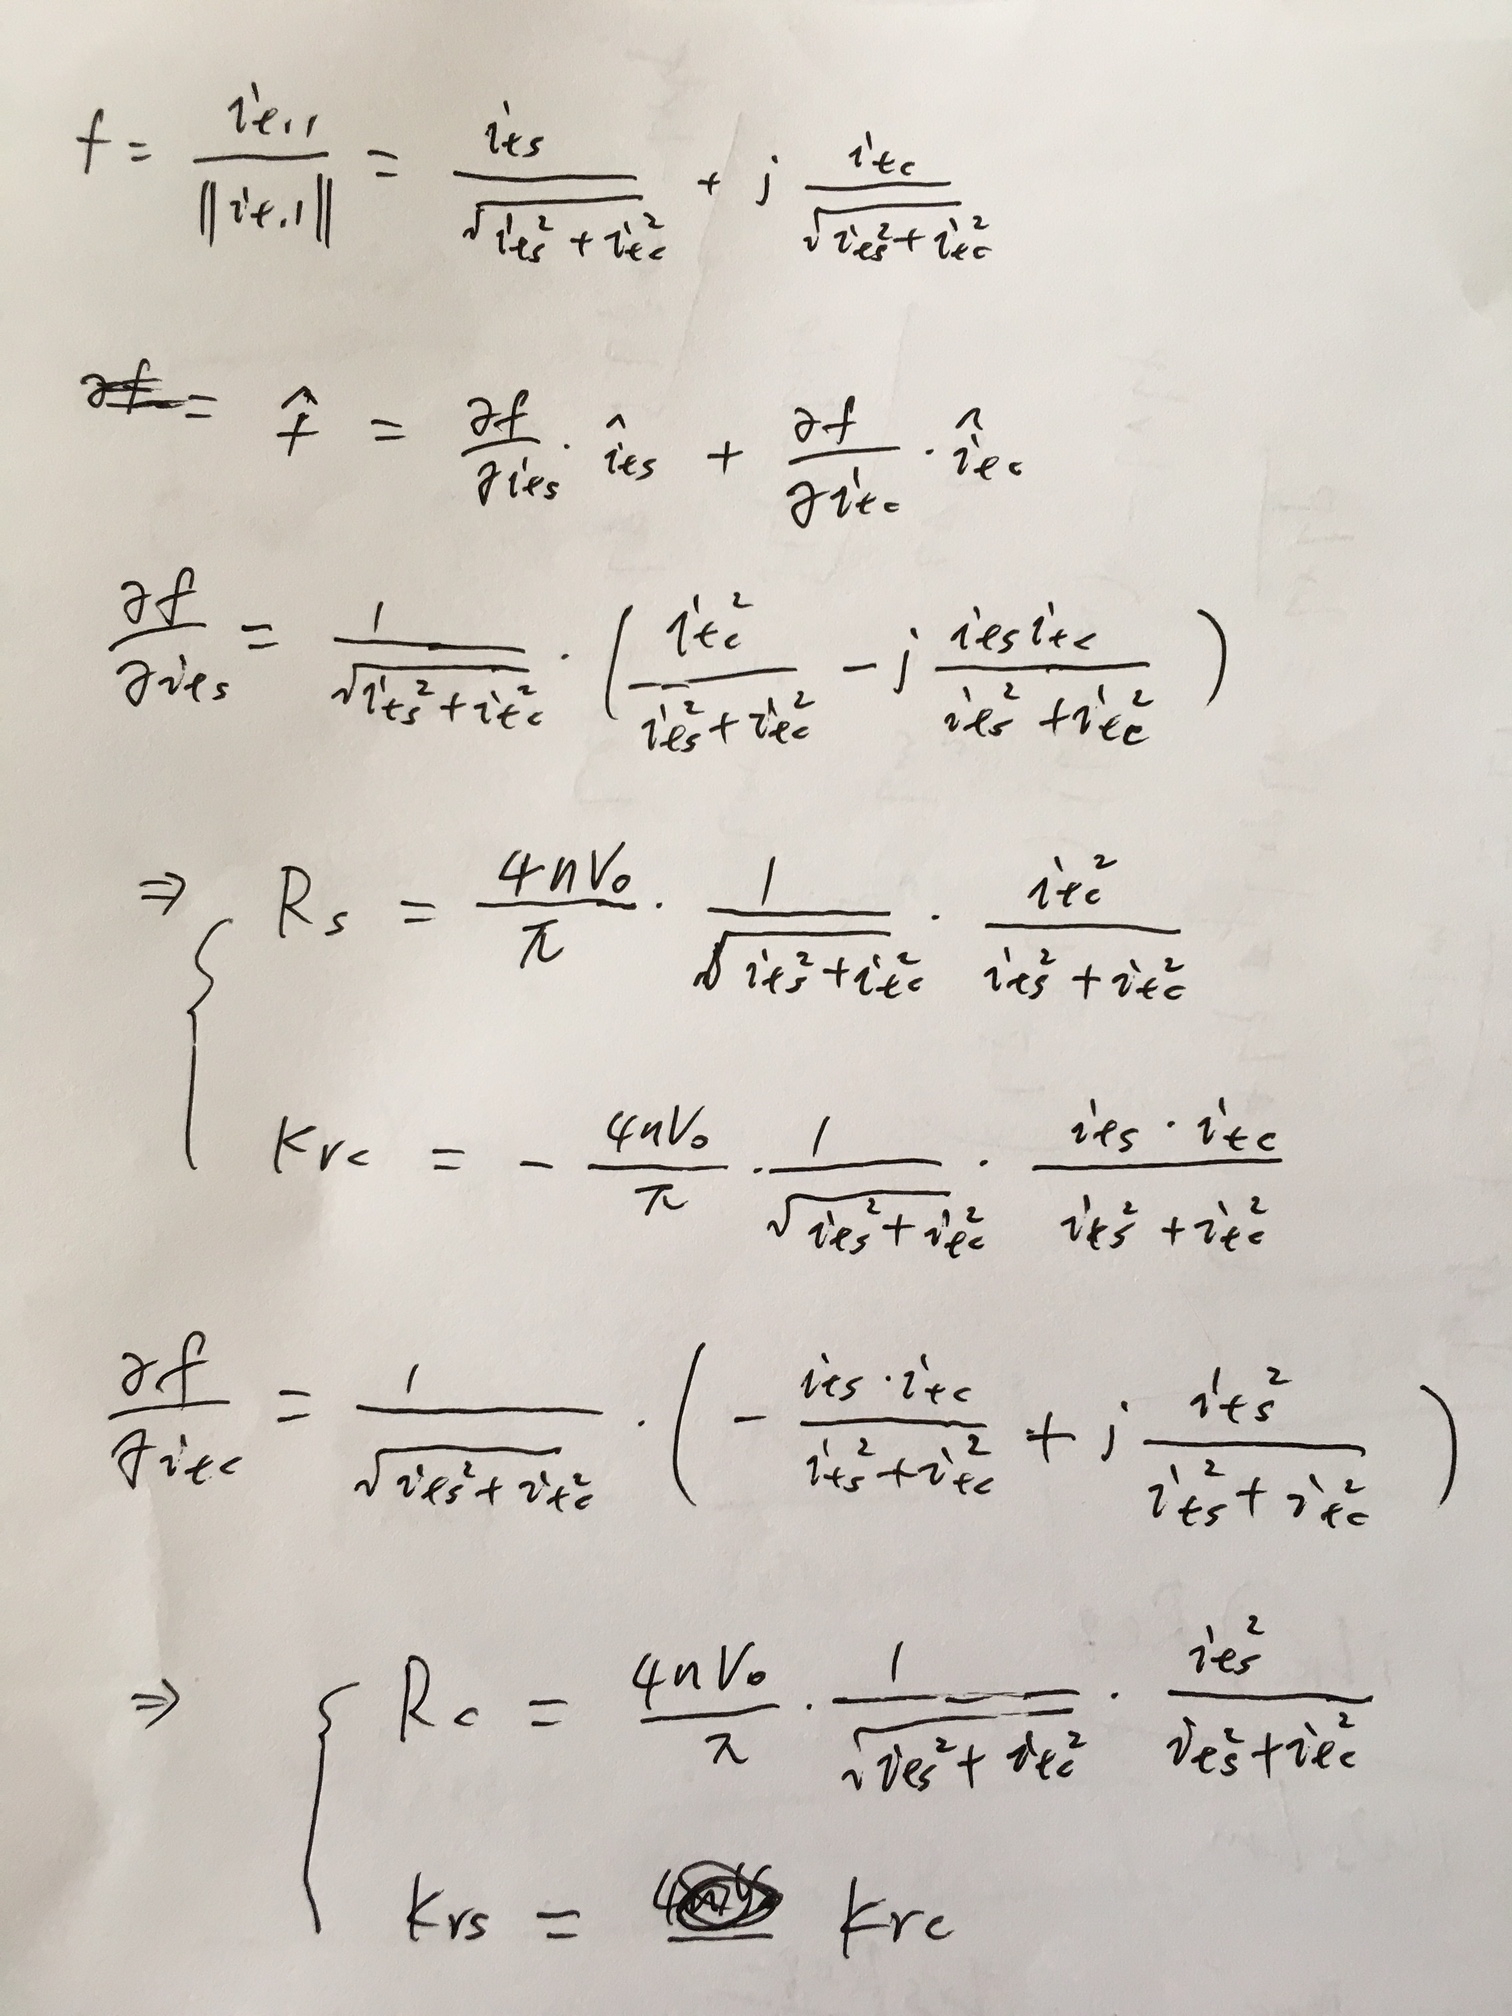 f = i_{t,1} / ‖i_{t,1}‖ = i_{ts} / √(i_{ts}² + i_{tc}²) + j i_{tc} / √(i_{ts}² + i_{tc}²)
= f̂ = ∂f/∂i_{ts} · î_{ts} + ∂f/∂i_{tc} · î_{tc}
∂f/∂i_{ts} = 1/√(i_{ts}² + i_{tc}²) · ( i_{tc}² / (i_{ts}² + i_{tc}²) − j i_{ts} i_{tc} / (i_{ts}² + i_{tc}²) )
⇒ { R_s = 4nV_o/π · 1/√(i_{ts}² + i_{tc}²) · i_{tc}² / (i_{ts}² + i_{tc}²)
K_{rc} = − 4nV_o/π · 1/√(i_{ts}² + i_{tc}²) · i_{ts} · i_{tc} / (i_{ts}² + i_{tc}²)
∂f/∂i_{tc} = 1/√(i_{ts}² + i_{tc}²) · ( − i_{ts} · i_{tc} / (i_{ts}² + i_{tc}²) + j i_{ts}² / (i_{ts}² + i_{tc}²) )
⇒ { R_c = 4nV_o/π · 1/√(i_{ts}² + i_{tc}²) · i_{ts}² / (i_{ts}² + i_{tc}²)
K_{rs} = K_{rc}